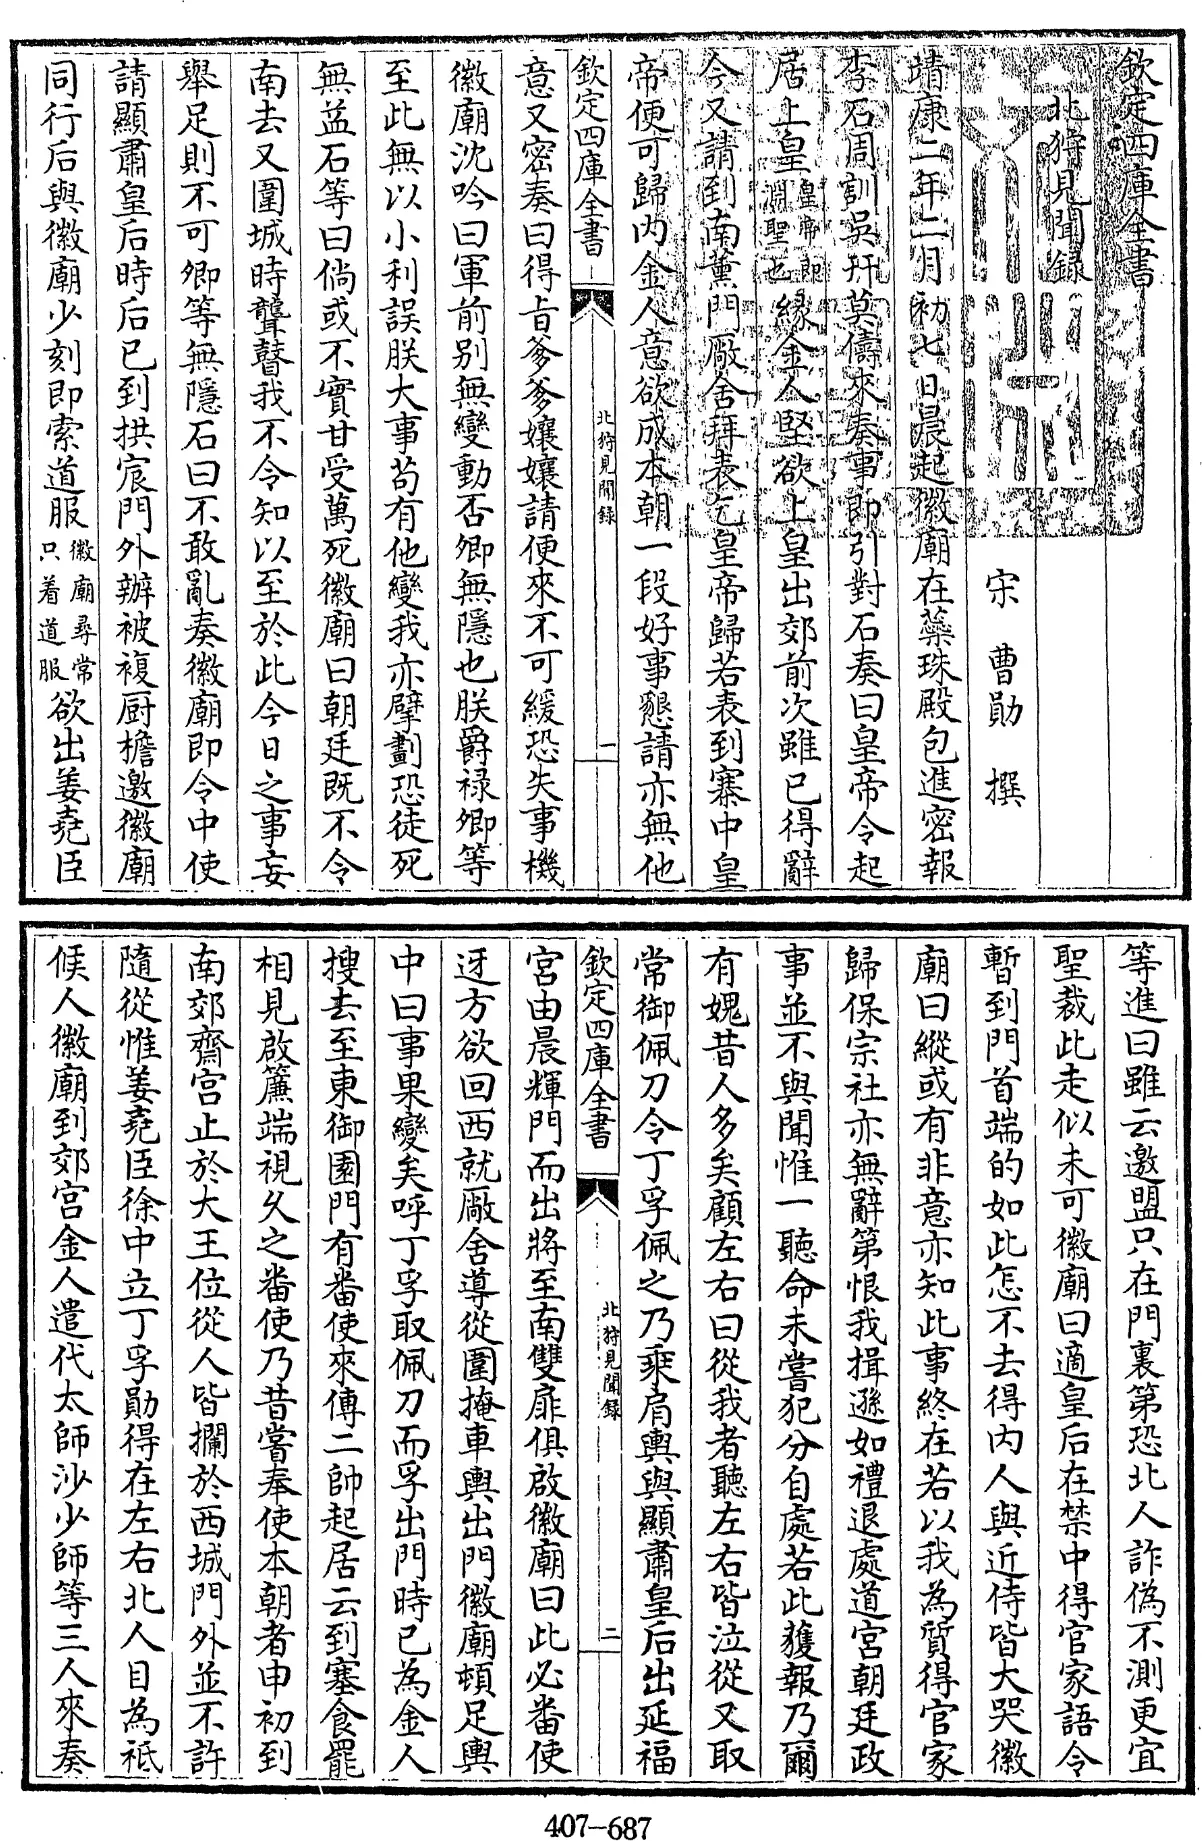 欽定四庫全書
北狩見聞錄
宋 曹勛 撰
靖康二年二月初七日晨起徽廟在蘂珠殿包進密報
李石周訓吳幵莫儔來奏事即引對石奏曰皇帝令起
居上皇皇帝即淵聖也緣金人堅欲上皇出郊前次雖已得辭
今又請到南薰門厰舍拜表乞皇帝歸若表到寨中皇
帝便可歸内金人意欲成本朝一段好事懇請亦無他
欽定四庫全書
北狩見聞錄
一
意又密奏曰得㫖爹爹孃孃請便來不可緩恐失事機
徽廟沈吟曰軍前别無變動否卿無隱也朕爵禄卿等
至此無以小利誤朕大事苟有他變我亦擘劃恐徒死
無益石等曰倘或不實甘受萬死徽廟曰朝廷既不令
南去又圍城時聾瞽我不令知以至於此今日之事妄
舉足則不可卿等無隱石曰不敢亂奏徽廟即令中使
請顯肅皇后時后已到拱宸門外辦被複厨檐邀徽廟
同行后與徽廟少刻即索道服徽廟尋常只着道服欲出姜堯臣
等進曰雖云邀盟只在門裏第恐北人詐偽不測更宜
聖裁此走似未可徽廟曰適皇后在禁中得官家語令
暫到門首端的如此怎不去得内人與近侍皆大哭徽
廟曰縱或有非意亦知此事終在若以我為質得官家
歸保宗社亦無辭第恨我揖遜如禮退處道宮朝廷政
事並不與聞惟一聽命未嘗犯分自處若此獲報乃爾
有媿昔人多矣顧左右曰從我者聽左右皆泣從又取
常御佩刀令丁孚佩之乃乘肩輿與顯肅皇后出延福
欽定四庫全書
北狩見聞錄
二
宮由晨輝門而出將至南雙扉俱啟徽廟曰此必番使
迓方欲回西就厰舍導從圍掩車輿出門徽廟頓足輿
中曰事果變矣呼丁孚取佩刀而孚出門時已為金人
搜去至東御園門有番使來傳二帥起居云到塞食罷
相見啟簾端視久之番使乃昔嘗奉使本朝者申初到
南郊齋宫止於大王位從人皆攔於西城門外並不許
隨從惟姜堯臣徐中立丁孚勛得在左右北人目為祗
候人徽廟到郊宫金人遣代太師沙少師等三人來奏
407-687